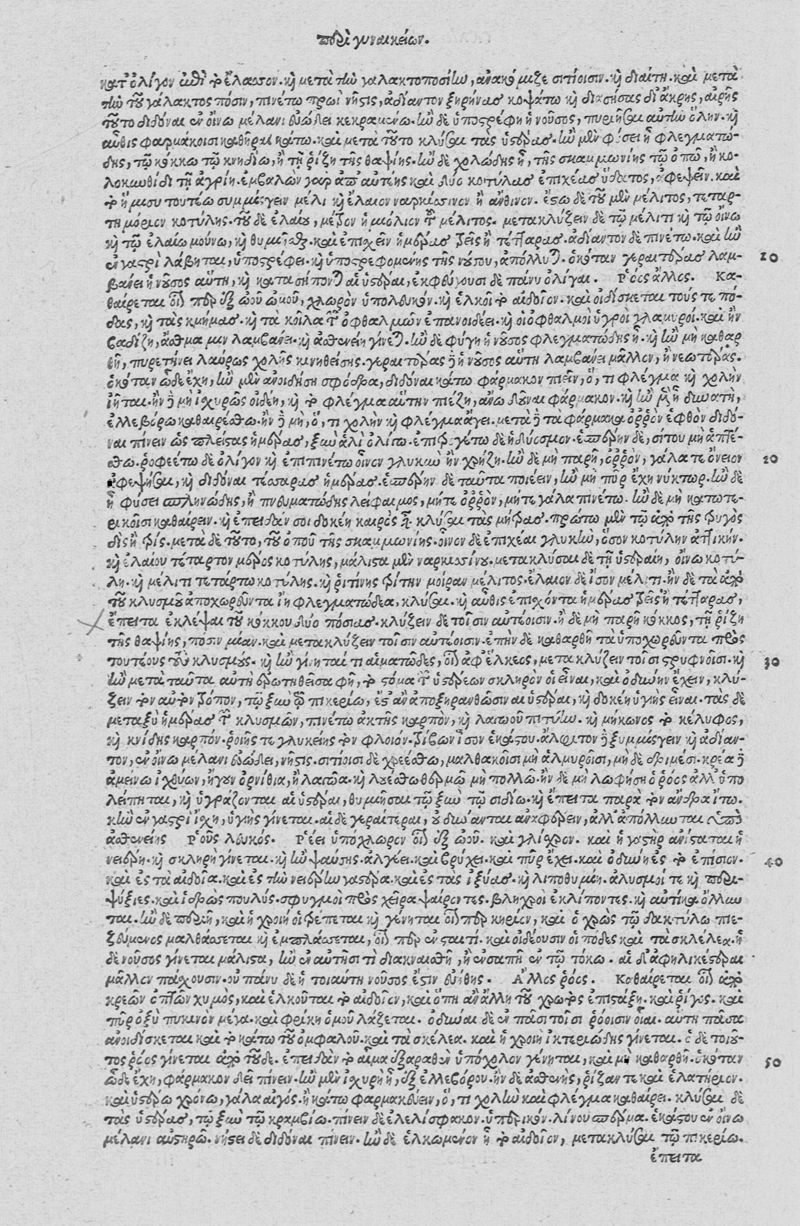 περὶ γυναικείων.
κατ' ὀλίγον ἐπὶ τὸ ἔλασσον. καὶ μετὰ τὴν γαλακτοποσίην, ἀνακόμιζε σιτίοισιν. καὶ διαίτῃ. καὶ μετὰ
τὴν τοῦ γάλακτος πόσιν, πινέτω πρωὶ νῆστις, ἀδίαντον ξηρήνας κοψάτω καὶ διασήσας δι' ἄκρης,
τοῦτο διδόναι ἐν οἴνω μέλανι εὐώδει κεκραμένω. ἢν δὲ ὑποστρέφῃ ἡ νοῦσος, πυριῆσαι αὐτὴν ὅλην. καὶ
αὖθις φαρμάκοισι καθῆραι κάτω. καὶ μετὰ τοῦτο κλύσαι τὰς ὑστέρας. ἢν μὲν φύσει ἢ φλεγματώ-
δης, τῷ κόκκω τῷ κνιδίω, ἢ τῇ ῥίζῃ τῆς θαψίης. ἢν δὲ χολώδης ᾖ, τῆς σκαμμωνίης τῷ ὀπῷ, ἢ κο-
λοκυνθίδι τῇ ἀγρίῃ. ἐμβαλὼν γὰρ ἀπ' αὐτέης καὶ δύο κοτύλας ἐπιχέας ὕδατος, ἀφεψεῖν. καὶ
τὸ ἥμισυ τουτέω συμμίσγειν μέλι καὶ ἔλαιον ναρκίσσινον ἢ ἄνθινον. ἔστω δὲ τοῦ μὲν μέλιτος, τεταρ-
τημόριον κοτύλης. τοῦ δὲ ἐλαίου, μεῖον ἢ μέλιτος. μετακλύζειν δὲ τῷ μέλιτι καὶ τῷ οἴνω
καὶ τῷ ἐλαίω μούνω, καὶ θυμιᾶσθαι. καὶ ἐπισχεῖν ἡμέρας τρεῖς ἢ τέσσαρας. ἀδίαντον δὲ πινέτω. καὶ ἢν
ἐν γαστρὶ λάβηται, ὑποστρέφει. καὶ ὑποστρεφομένης τῆς νούσου, ἀπόλλυται. ὁκόταν γεραιτέρας λαμ-
βάνει ἡ νοῦσος αὕτη, καὶ κατασήπονται αἱ ὑστέραι, ἐκφεύγουσι δὲ πάνυ ὀλίγαι. Ῥόος ἄλλος. Κα-
θαίρεται οἷον περ ἐξ ὠοῦ ὠμοῦ, χλωρὸν ὑπόλευκον. καὶ ἑλκοῖ τὸ αἰδοῖον. καὶ οἰδίσκεται τούς τε πό-
δας, καὶ τὰς κνήμας. καὶ τὰ κοῖλα τῶν ὀφθαλμῶν ἐπανοιδέει. καὶ οἱ ὀφθαλμοὶ ὑγροὶ γλαμυροί. καὶ ἢν
βαδίζῃ, ἄσθμα μιν λαμβάνει. καὶ ἀσθενείη γίνεται. ἢν δὲ φύσῃ ἡ νοῦσος φλεγματώδης ᾖ. καὶ ἢν μὴ καθαρ
θῇ, πυρετήνει λαύρως χολῆς κινηθείσης. γεραιτέρας δὲ ἡ νοῦσος αὕτη λαμβάνει μᾶλλον, ἢ νεωτέρας.
ὁκόταν ὧδε ἔχῃ, ἢν μὲν ἀνοιδήσῃ σφόδρα, διδόναι κάτω φάρμακον πιεῖν, ὅ, τι φλέγμα καὶ χολὴν
ἕηται. ἢν δὲ μὴ ἰσχυρῶς οἰδέῃ, καὶ τὸ φλέγμα αὐτὴν πιέζῃ, ἄνω δοῦναι φάρμακον. καὶ ἢν μὲν ᾖ δυνατὴ,
ἐλλεβόρω καθαιρέσθω. ἢν δὲ μὴ, ὅ, τι χολὴν καὶ φλέγμα ἄγει. μετὰ δὲ τὰ φάρμακα ὀῤῥὸν ἑφθὸν διδό-
ναι πίνειν ὡς πλείστας ἡμέρας, ξὺν ἁλὶ ὀλίγω. ἐπιῤῥοφείτω δὲ ἡδύοσμον. ἑσπέρην δὲ, σίτου μὴ ἀπτέ-
σθω. ῥοφείτω δὲ ὀλίγον καὶ ἐπιπινέτω οἶνον γλυκὺν ἢν χρῄζῃ. ἢν δὲ μὴ παρῇ, ὀῤῥὸν, γάλατε ὄνειον
ἑψῆσαι, καὶ διδόναι τέσσαρας ἡμέρας. ἑσπέρην δὲ ταὐτὰ ποιέειν, ἢν μὴ πῦρ ἔχῃ νύκτωρ. ἢν δὲ
ᾖ φύσει σπληνώδης, ἢ πνευματώδης λείφαιμος, μήτε ὀῤῥὸν, μήτε γάλα πινέτω. ἢν δὲ μὴ κατωτε-
ρικοῖσι καθαίρειν. καὶ ἐπειδάν σοι δοκέῃ καιρὸς εἶναι κλύσαι τὰς μήτρας. πρώτω μὲν τῷ ἀπὸ τῆς τρυγὸς
δὶς ἢ τρίς. μετὰ δὲ τοῦτο, τοῦ ὀποῦ τῆς σκαμμωνίης. οἶνον δὲ ἐπιχέαι γλυκὺν, ὅσον κοτύλην ἀττικήν.
καὶ ἐλαίου τέταρτον μέρος κοτύλης, μάλιστα μὲν ναρκισσίνου. μετακλύσαι δὲ τῇ ὑστεραίῃ, οἴνω κοτύ-
λῃ. καὶ μέλιτι τετάρτω κοτύλης. καὶ ῥιτίνης τρίτην μοῖραν μέλιτος. ἔλαιον δὲ ἴσον μέλιτι. ἢν δὲ τὰ ἀπὸ
τοῦ κλυσμοῦ ἀποχωρεῦντα ἴῃ φλεγματώδεα. κλῦσαι. καὶ αὖθις ἐπισχόντα ἡμέρας τρεῖς ἢ τέσσαρας,
ἔπειτα ἐκλέψαι τοῦ κόκκου δύο πόσιας. κλύζειν δὲ τοῖσιν αὐτέοισιν. ἢ δὲ μὴ παρῇ κόκκος, τῇ ῥίζῃ
τῆς θαψίης, πόσιν μίαν. καὶ μετακλύζειν τοῖσιν αὐτέοισιν. ἐπὴν δὲ καθαρθῇ τὰ ὑποχωρεῦντα πρὸς
τουτέους τοὺς κλυσμοὺς. καὶ ἢν γίνηται τι αἱματῶδες, οἷον ἀφ' ἕλκεος, μετακλύζειν τοῖσι στρυφνοῖσι. καὶ
ἢν μετὰ ταῦτα αὐτῇ ἐρωτηθείσῃ φῇ, τὸ στόμα τῶν ὑστέρων σκληρὸν οἱ εἶναι, καὶ ὀδύνην ἔχειν, κλύ-
ζειν τὸν αὐτὸν τρόπον, τῷ ξὺν τῷ πικερίω, ἔστ' ἂν ἀποξηρανθῶσιν αἱ ὑστέραι, καὶ δοκέῃ ὑγιὴς εἶναι. τὰς δὲ
μεταξὺ ἡμέρας τῶν κλυσμῶν, πινέτω ἀκτῆς καρπὸν, καὶ λαγωοῦ πιτύην. καὶ μήκωνος τὸ κέλυφος,
καὶ κνίδης καρπόν. ῥοιῆς τε γλυκείης τὸν φλοιόν. τρίβων ἴσον ἑκάστου. ἄλφιτον δὲ ξυμμίσγειν καὶ ἀδίαν-
τον, ἐν οἴνω μέλανι εὐώδει, νῆστις. σιτίοισι δὲ χρεέσθω, μαλθακοῖσι μὴ ἁλμυροῖσι, μὴ δὲ δριμέσι. κρέα δὲ
ἀμείνω ἰχθύων, ἤγουν ὀρνίθια, ἢ λαγῶα. καὶ λουέσθω θερμῷ μὴ πολλῷ. ἢν δὲ μὴ λωφήσῃ ὁ ῥόος ἀλλ' ὑπο
λείπηται, καὶ ὑγράζονται αἱ ὑστέραι, θυμιῆσαι τῷ ξὺν τῷ σιδίω. καὶ ἔπειτα παρὰ τὸν ἄνδρα ἴτω.
κἢν ἐν γαστρὶ ἴσχῃ, ὑγιὴς γίνεται. αἱ δὲ γεραίτεραι, οὐ δύνανται ἀναφέρειν, ἀλλ' ἀπόλλυνται ὑπὸ
ἀσθενείης Ῥοῦς λευκός. Ῥέει ὑπόχλωρον οἷον ἐξ ὠοῦ. καὶ γλίσχρον. καὶ ἡ γαστὴρ ἀνίσταται ἡ
νείαιρη. καὶ σκληρὴ γίνεται. καὶ ἢν ψαύσῃς ἀλγέει. καὶ βρύχει. καὶ πῦρ ἔχει. καὶ ὀδύνη ἐς τὸ ἐπίσιον.
καὶ ἐς τὰ αἰδοῖα. καὶ ἐς τὴν νείαιρην γαστέρα. καὶ ἐς τὰς ἰξύας. καὶ λιποθυμίη. ἀλυσμοί τε καὶ περι-
ψύξιες. καὶ ἱδρὼς πουλύς. σφυγμοὶ πρὸς χεῖρα ψαίροντες. βληχροὶ ἐκλίποντες. καὶ αὐτίκα ὄλλυν
ται. ἢν δὲ περιῇ, καὶ ἡ χροιή οἱ τρέπεται καὶ γένηται οἷόν περ κηρίον, καὶ ὁ χρὼς τῷ δακτύλω πιε-
ζεύμενος μαλθάσσεται καὶ ἐμπλάσσεται, οἷόν περ ἐν σταιτί. καὶ οἰδέουσιν οἱ πόδες καὶ τὰ σκέλεα. ἡ
δὲ νοῦσος γίνεται μάλιστα, ἢν ἐν αὐτῇσί τι διακναισθῇ, ἢ ἐνσαπῇ ἐν τῷ τόκω. αἱ δ' ἀφηλικέστεραι
μᾶλλον πάσχουσιν. οὐ πάνυ δὲ ἡ τοιαύτη νοῦσος ἐστὶν εὐήθης. Ἄλλος ῥόος. Καθαίρεται οἷον ἀπὸ
κρεῶν ὀπτῶν χυμὸς, καὶ ἑλκοῦται τὸ αἰδοῖον, καὶ ὅπη ἂν ἄλλῃ τοῦ χρωτὸς ἐπιστάξῃ. καὶ ῥῖγος. καὶ
πῦρ ὀξὺ πυκινὸν μέγα. καὶ φρίκη ὁμοῦ λάζεται. ὀδύναι δὲ ἐν πᾶσι τοῖσι ῥόοισιν οἷαι. αὕτη πᾶσα
ἀνοιδίσκεται καὶ τὸ κάτω τοῦ ὀμφαλοῦ. καὶ τὰ σκέλεα. καὶ ἡ χροιὴ ἰκτεριώδης γίνεται. ὁ δὲ τοιοῦ-
τος ῥόος γίνεται ἀπὸ τοῦδε. ἐπειδὰν τὸ αἷμα ἐξαραθὲν ὑπόχολον γένηται, καὶ μὴ καθαρθῇ. ὁκόταν
ὧδε ἔχῃ, φάρμακον δεῖ πίνειν. ἢν μὲν ἰσχυρὴ ᾖ, ἐξ ἐλλεβόρου. ἢν δὲ ἀσθενὴς, ῥίζαν τε καὶ ἐλατήριον.
καὶ ὑστέρω χρόνω, γάλα αἰγός. ἢ κάτω φαρμακεύειν, ὅ, τι χολὴν καὶ φλέγμα καθαίρει. κλύσαι δὲ
τὰς ὑστέρας, τῷ ξὺν τῷ κραμβίω. πίνειν δὲ ἐλελίσφακον. ὑπέρικόν. λίνου σπέρμα. ἑκάστου ἐν οἴνω
μέλανι αὐστηρῷ. νήστει δὲ διδόναι πίνειν. ἢν δὲ ἑλκωμένον ᾖ τὸ αἰδοῖον, μετακλύσαι τῷ πικερίω.
ἔπειτα
20
20
30
40
50